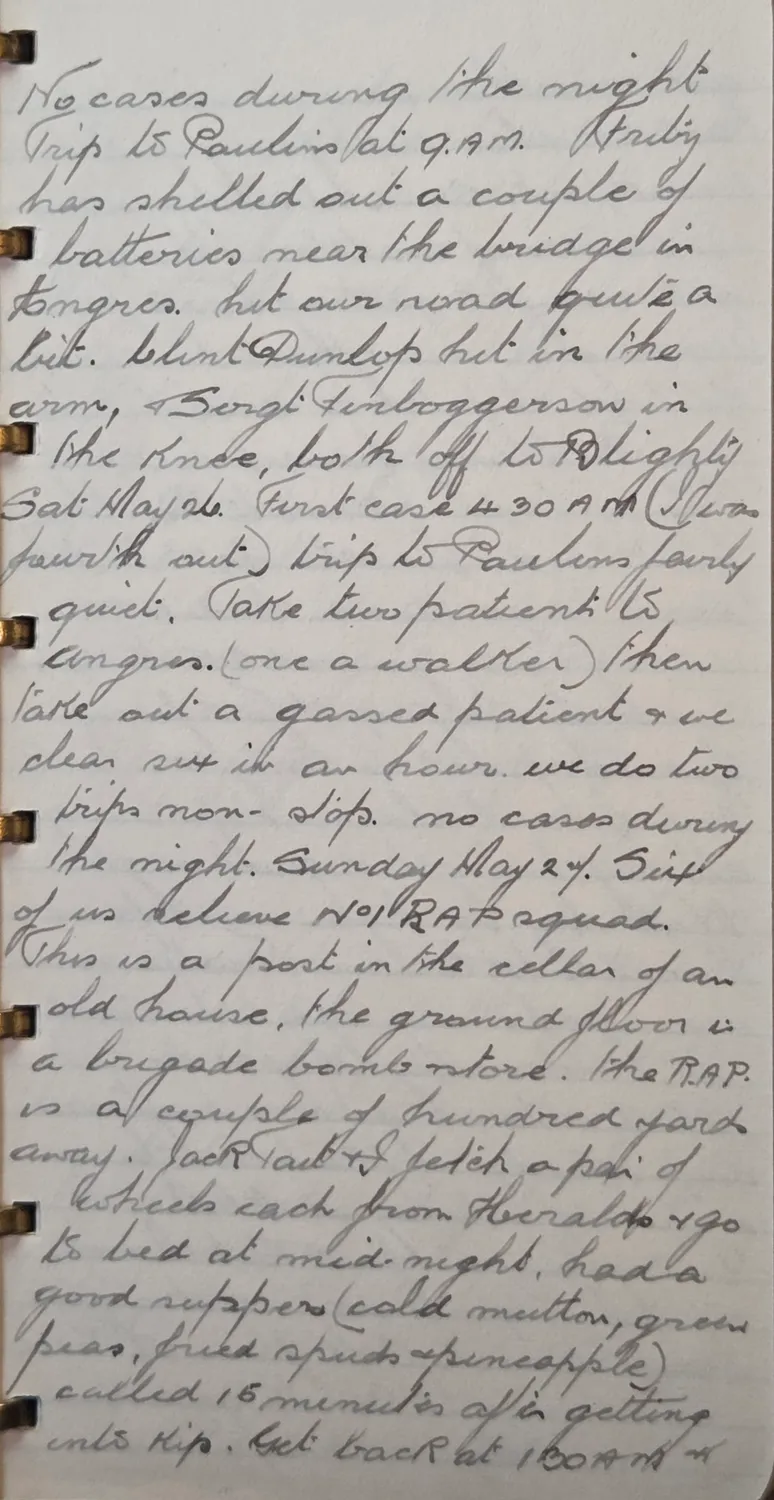 No cases during the night
Trip to Paulins at 9.A.M. Fritz
has shelled out a couple of
batteries near the bridge in
Angres. hit our road quite a
bit. Clint Dunlop hit in the
arm, & Sergt Finboggerson in
the knee, both off to Blighty
Sat May 26. First case 4 30 AM (I was
fourth out) trip to Paulins fairly
quiet. Take two patients to
Angres. (one a walker) then
take out a gassed patient & we
clear six in an hour. we do two
trips non-stop. no cases during
the night. Sunday May 27. Six
of us relieve No1 RAP squad.
This is a post in the cellar of an
old house, the ground floor is
a brigade bomb-store. the R.A.P.
is a couple of hundred yards
away. Jack Tait & I fetch a pair of
wheels each from Heralds & go
to bed at mid-night, had a
good supper (cold mutton, green
peas, fried spuds & pineapple)
called 15 minutes after getting
into kip. Get back at 1 30 AM &